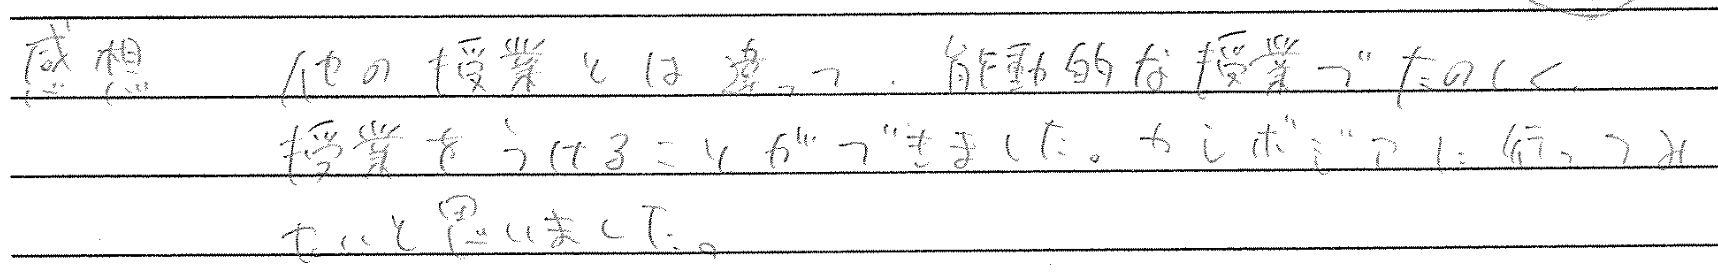 感想 他の授業とは違って、能動的な授業でたのしく
授業をうけることができました。カンボジアに行ってみ
たいと思いました。